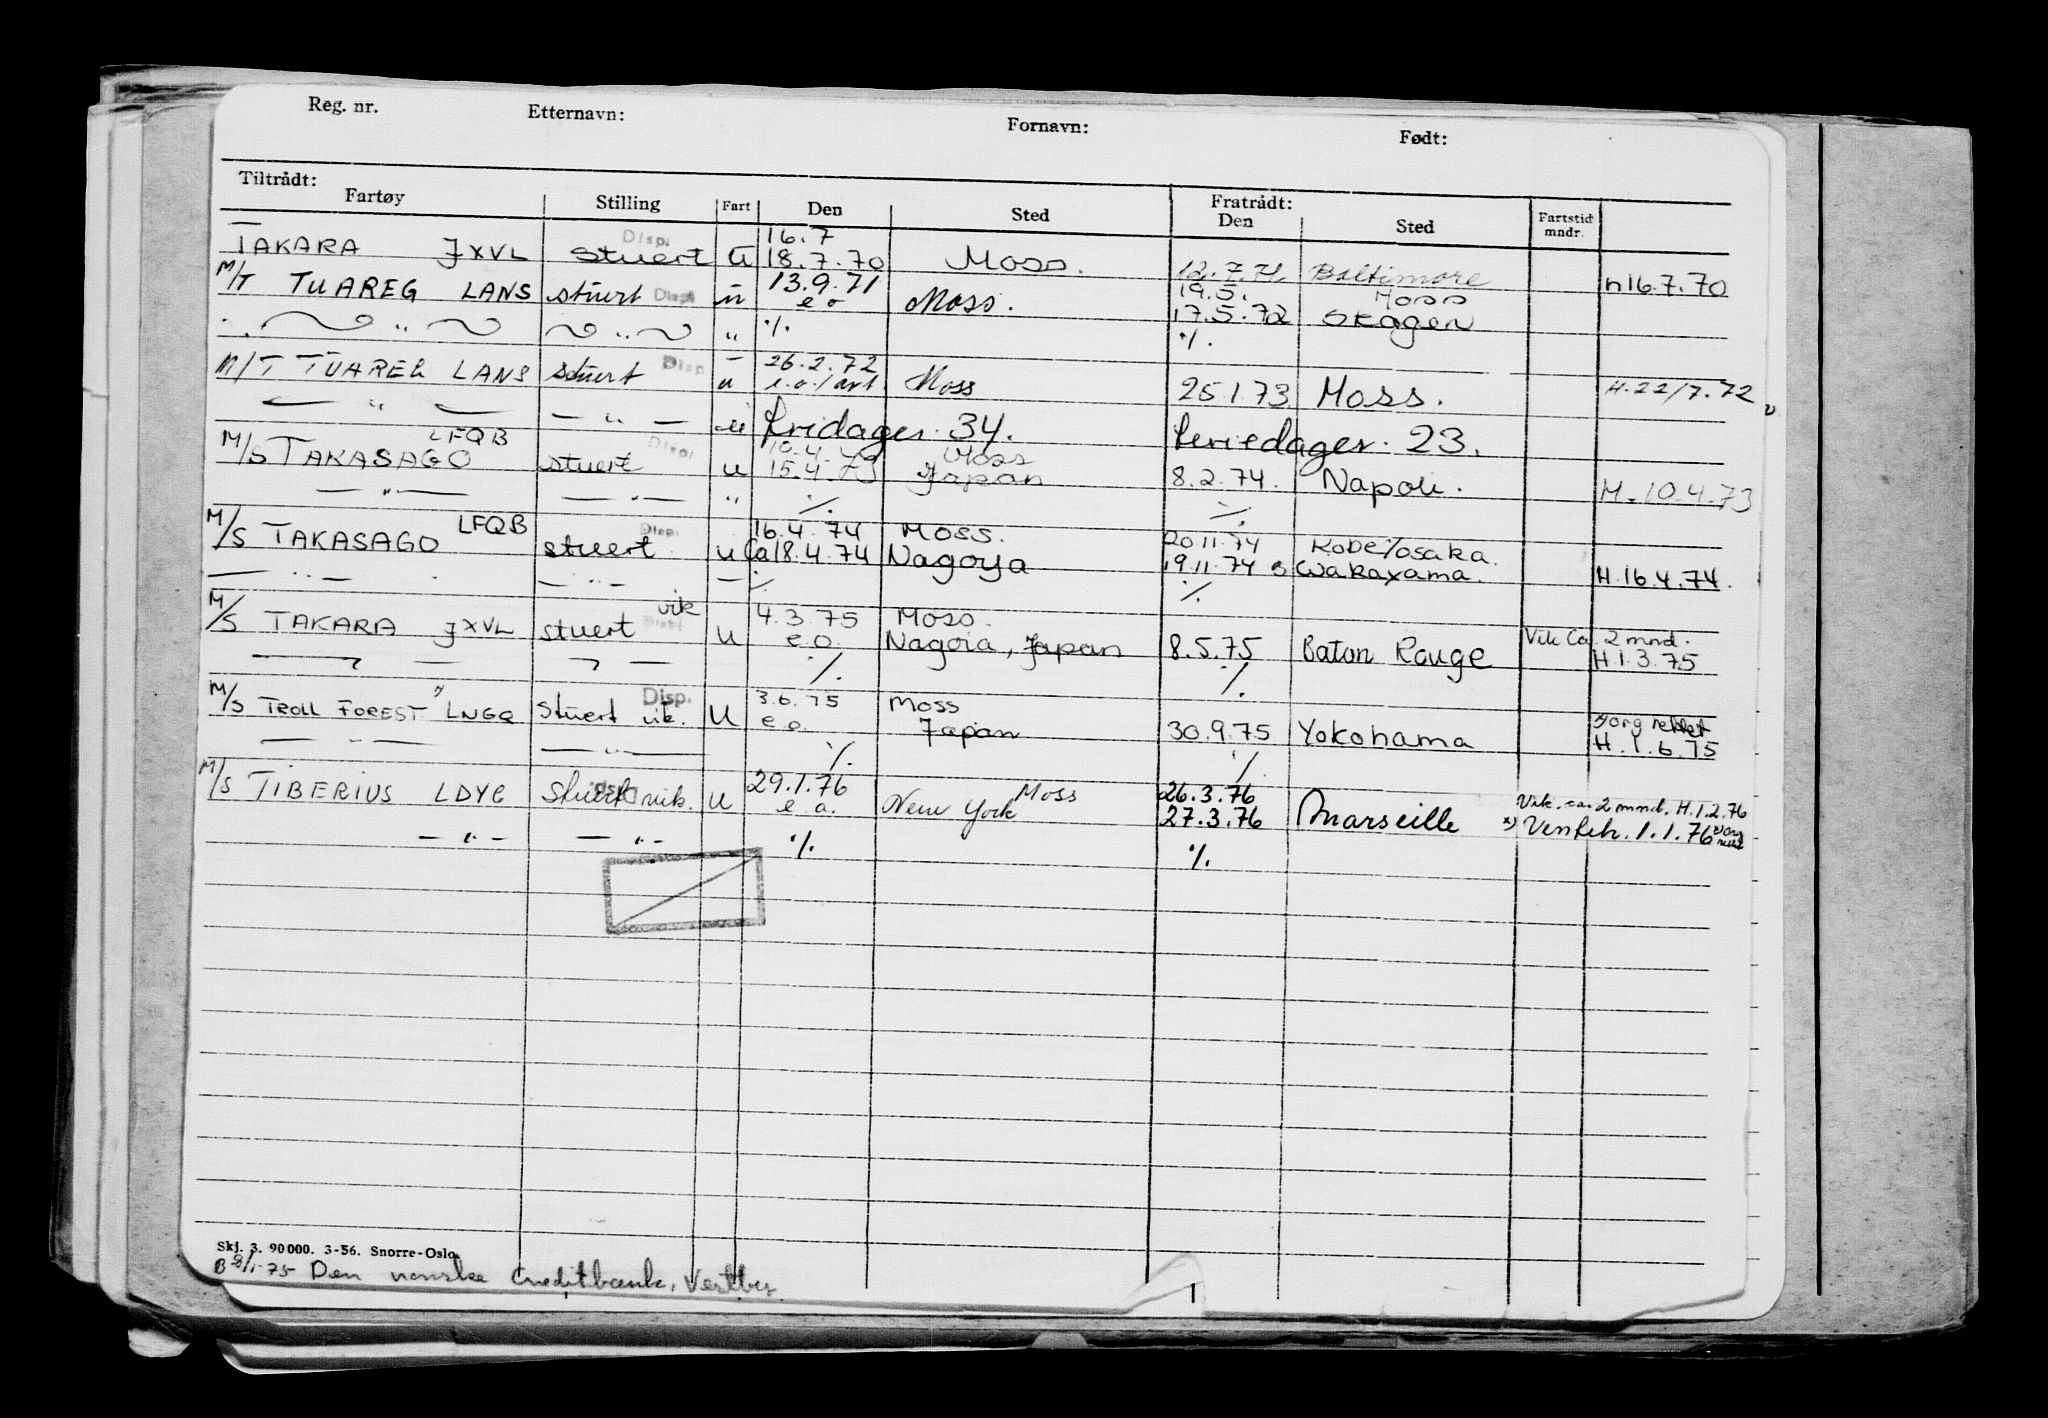 Reg. nr. Etternavn: Fornavn: Født:
Tiltrådt: Fratrådt:
Fartøy Stilling Fart Den Sted Den Sted Fartstid mndr.
Disp. 16.7
TAKARA JXVL stuert u 18.7.70 Moss. 12.7.71 Baltimore h 16.7.70
M/T TUAREG LANS stuert Disp. u 13.9.71 e o Moss. 19.5. Moss
" " " % 17.5.72 Skagen %.
M/T TUAREG LANS stuert Disp u 26.2.72 e.o./avt. Moss 25.1.73 Moss. H.22/7.72
— " — — " — " Fridager. 34. Feriedager. 23.
M/S TAKASAGO LFQB stuert Disp. u 10.4.73 Moss
15.4.73 Japan 8.2.74. Napoli. H. 10.4.73
— " — — " — " % %
M/S TAKASAGO LFQB stuert Disp. u 16.4.74 Moss. 20.11.74 Kobe/Osaka.
Ca 18.4.74 Nagoya 19.11.74 Wakayama. H.16.4.74.
— " — — " — — % %
M/S TAKARA JXVL stuert vik Disp. u 4.3.75 Moss.
e.o. Nagoia, Japan 8.5.75 Baton Rouge Vik Ca. 2 mnd. H.1.3.75
— " — — " — % %.
M/S TROLL FOREST LNGQ Stuert vik. Disp. U 3.6.75 Moss
e.o. Japan 30.9.75 Yokohama org rettet H.1.6.75
— " — — " — % %
M/S TIBERIUS LDYG Stuert vik. Disp. u 29.1.76 Moss 26.3.76 Vik. ca. 2 mmd. H.1.2.76
e o. New York 27.3.76 Marseille x) Ventet. 1.1.76 x) org
— " — — " — % %
Skj. 3. 90 000. 3-56. Snorre-Oslo.
75 Den norske Creditbank, Vestby